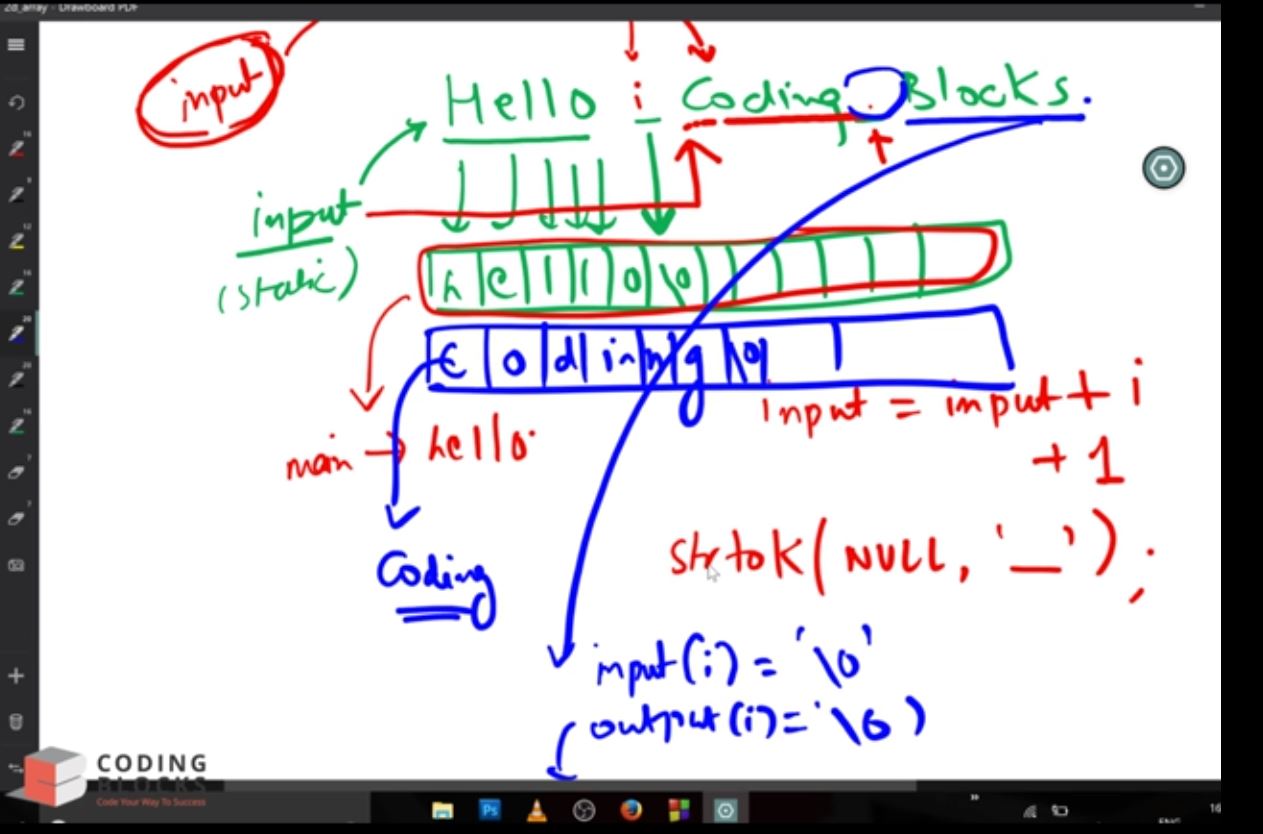 2d_array - Drawboard PDF
input
Hello i Coding. Blocks.
input
(static)
h e l l o \0
C o d i n g \0
input = input + i
+ 1
main → hello
Coding
strtok( NULL, '_' );
input(i) = '\0'
output(i) = '\0)
CODING
BLOCKS
Code Your Way To Success
Ps
16
ENG